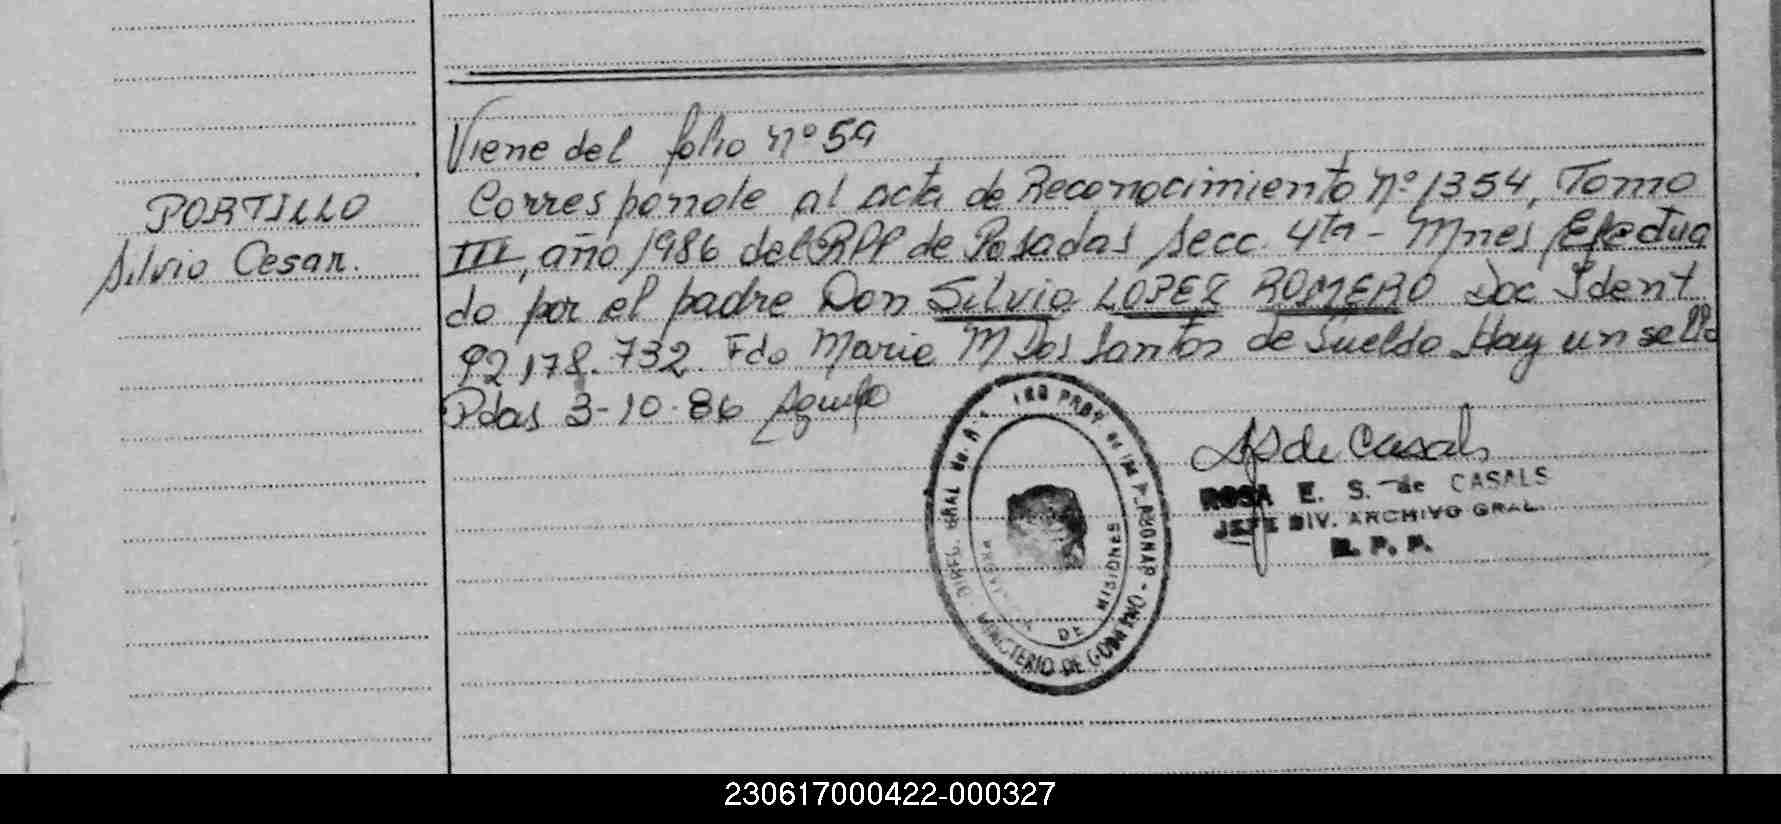 PORTILLO
Silvio Cesar.
Viene del folio nº 59
Corresponde al acta de Reconocimiento nº 1354, Tomo
III, año 1986 del RPP de Posadas Secc. 4ta - Mnes, Efectua
do por el padre Don Silvio LOPEZ ROMERO Doc Ident
92,178.732. Fdo Maria M Dos Santos de Sueldo Hay un sello
Pdas 3-10-86
DE MISIONES
MINISTERIO DE GOBIERNO
de Casals
ROSA E. S. de CASALS
JEFE DIV. ARCHIVO GRAL.
R. P. P.
230617000422-000327